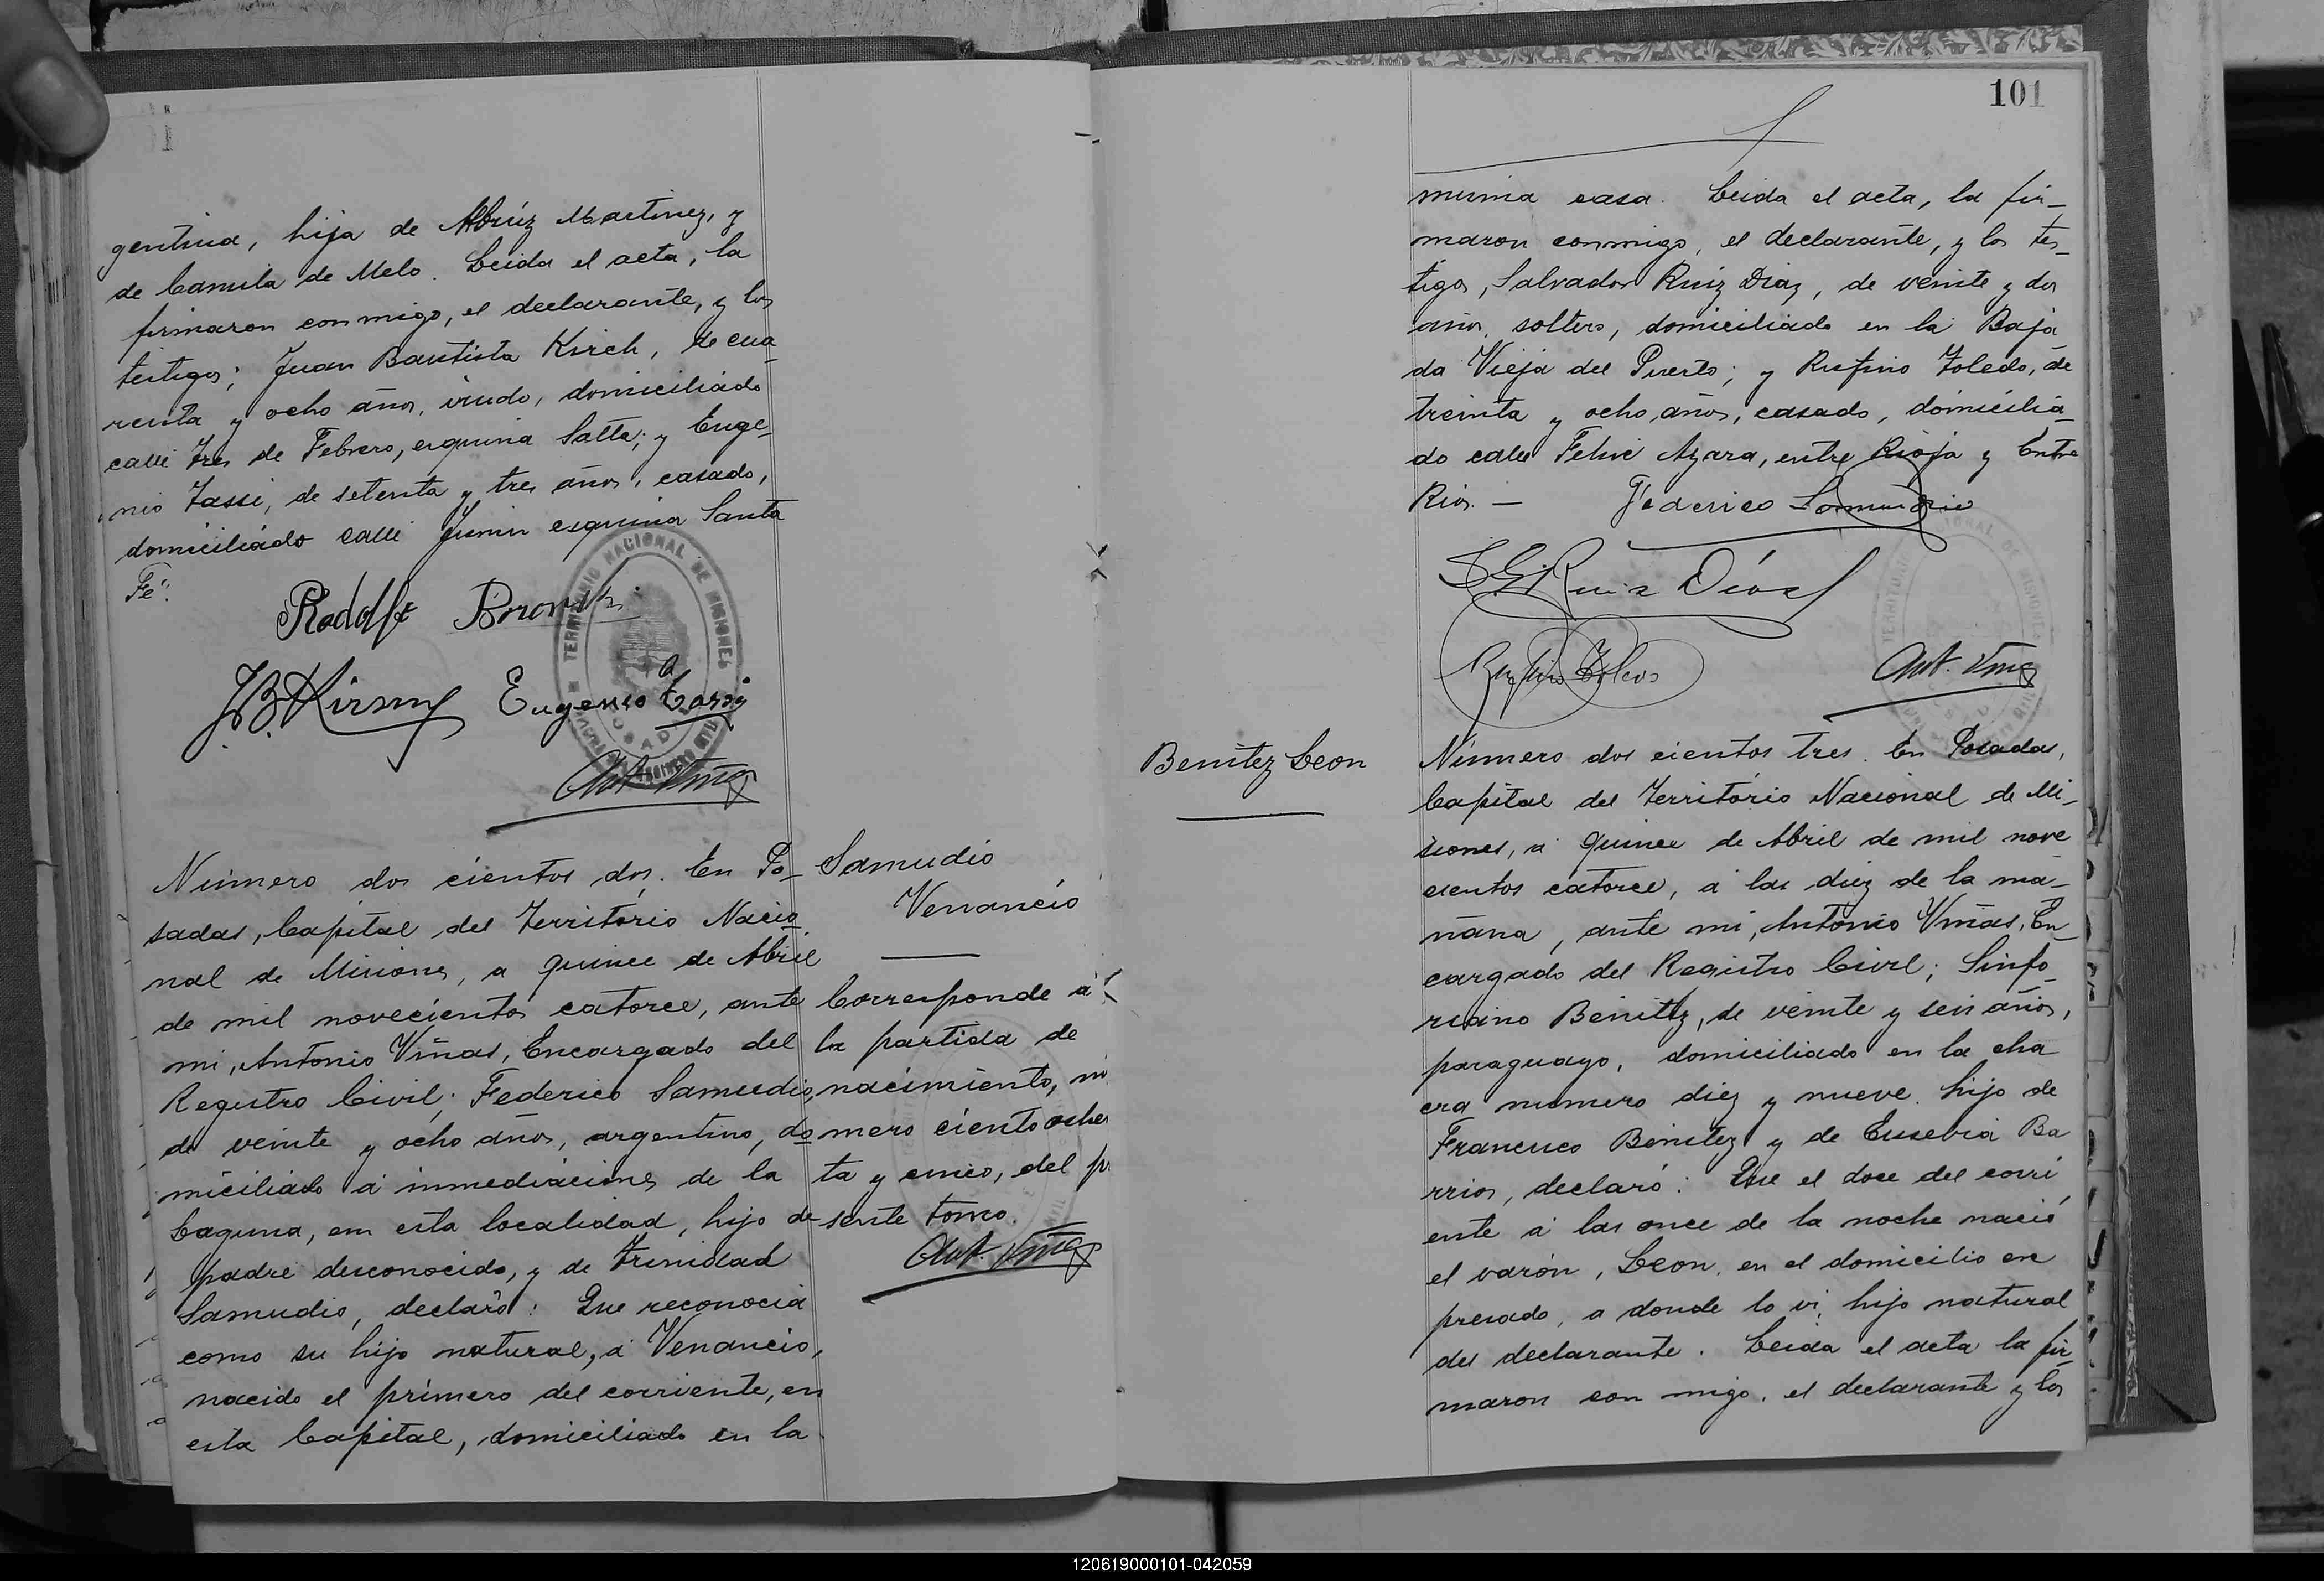 gentina, hija de Abrúz Martinez, y
de Camila de Melo. Leida el acta, la
firmaron conmigo, el declarante, y los
testigos; Juan Bautista Kirch, de cua-
renta y ocho años, viudo, domiciliado
calle Tres de Febrero, esquina Salta; y Euge-
nio Tassi, de setenta y tres años, casado,
domiciliado calle Junin esquina Santa
Fé.
Rodolfo
J.B. Kirsch Eugenio Tassi
TERRITORIO NACIONAL DE MISIONES
POSADAS
Ant. Viñas
Número dos cientos dos. En Po-
sadas, Capital del Território Nacio-
nal de Misiones, a quince de Abril
de mil novecientos catorce, ante
mi, Antonio Viñas, Encargado del
Registro Civil; Federico Samudio,
de veinte y ocho años, argentino, do-
miciliado á inmediaciones de la
Laguna, em esta localidad, hijo de
padre desconocido, y de Trinidad
Samudio, declaró: Que reconocia
como su hijo natural, á Venancio,
nacido el primero del corriente, en
esta Capital, domiciliado en la
Samudio
Venancio
Corresponde á
la partida de
nacimiento, nú
mero ciento ochen
ta y cinco, del pr
sente tomo.
Ant. Viñas
101
misma casa. Leida el acta, la fir-
maron conmigo, el declarante, y los tes-
tigos, Salvador Ruiz Diaz, de veinte y dos
años, soltero, domiciliado en la Baja
da Vieja del Puerto; y Rufino Toledo, de
treinta y ocho años, casado, domicilia-
do calle Felix Azara, entre Rioja y Entre
Rios. — Federico Samudio
S G Ruiz Diaz
Rufino Toledo Ant. Viñas
Benitez Leon
Número dos cientos tres. En Posadas,
Capital del Território Nacional de Mi-
siones, á quince de Abril de mil nove
cientos catorce, á las diez de la ma-
ñana, ante mi, Antonio Viñas, En-
cargado del Registro Civil; Sinfo-
riano Benitez, de veinte y seis años,
paraguayo, domiciliado en la cha
cra numero diez y nueve, hijo de
Francisco Benitez y de Eusebia Ba
rrios, declaró: Que el doce del corri
ente á las once de la noche nació
el varón, Leon, en el domicilio ex
presado, a donde lo vi, hijo natural
del declarante. Leida el acta la fir-
maron con migo, el declarante y los
120619000101-042059